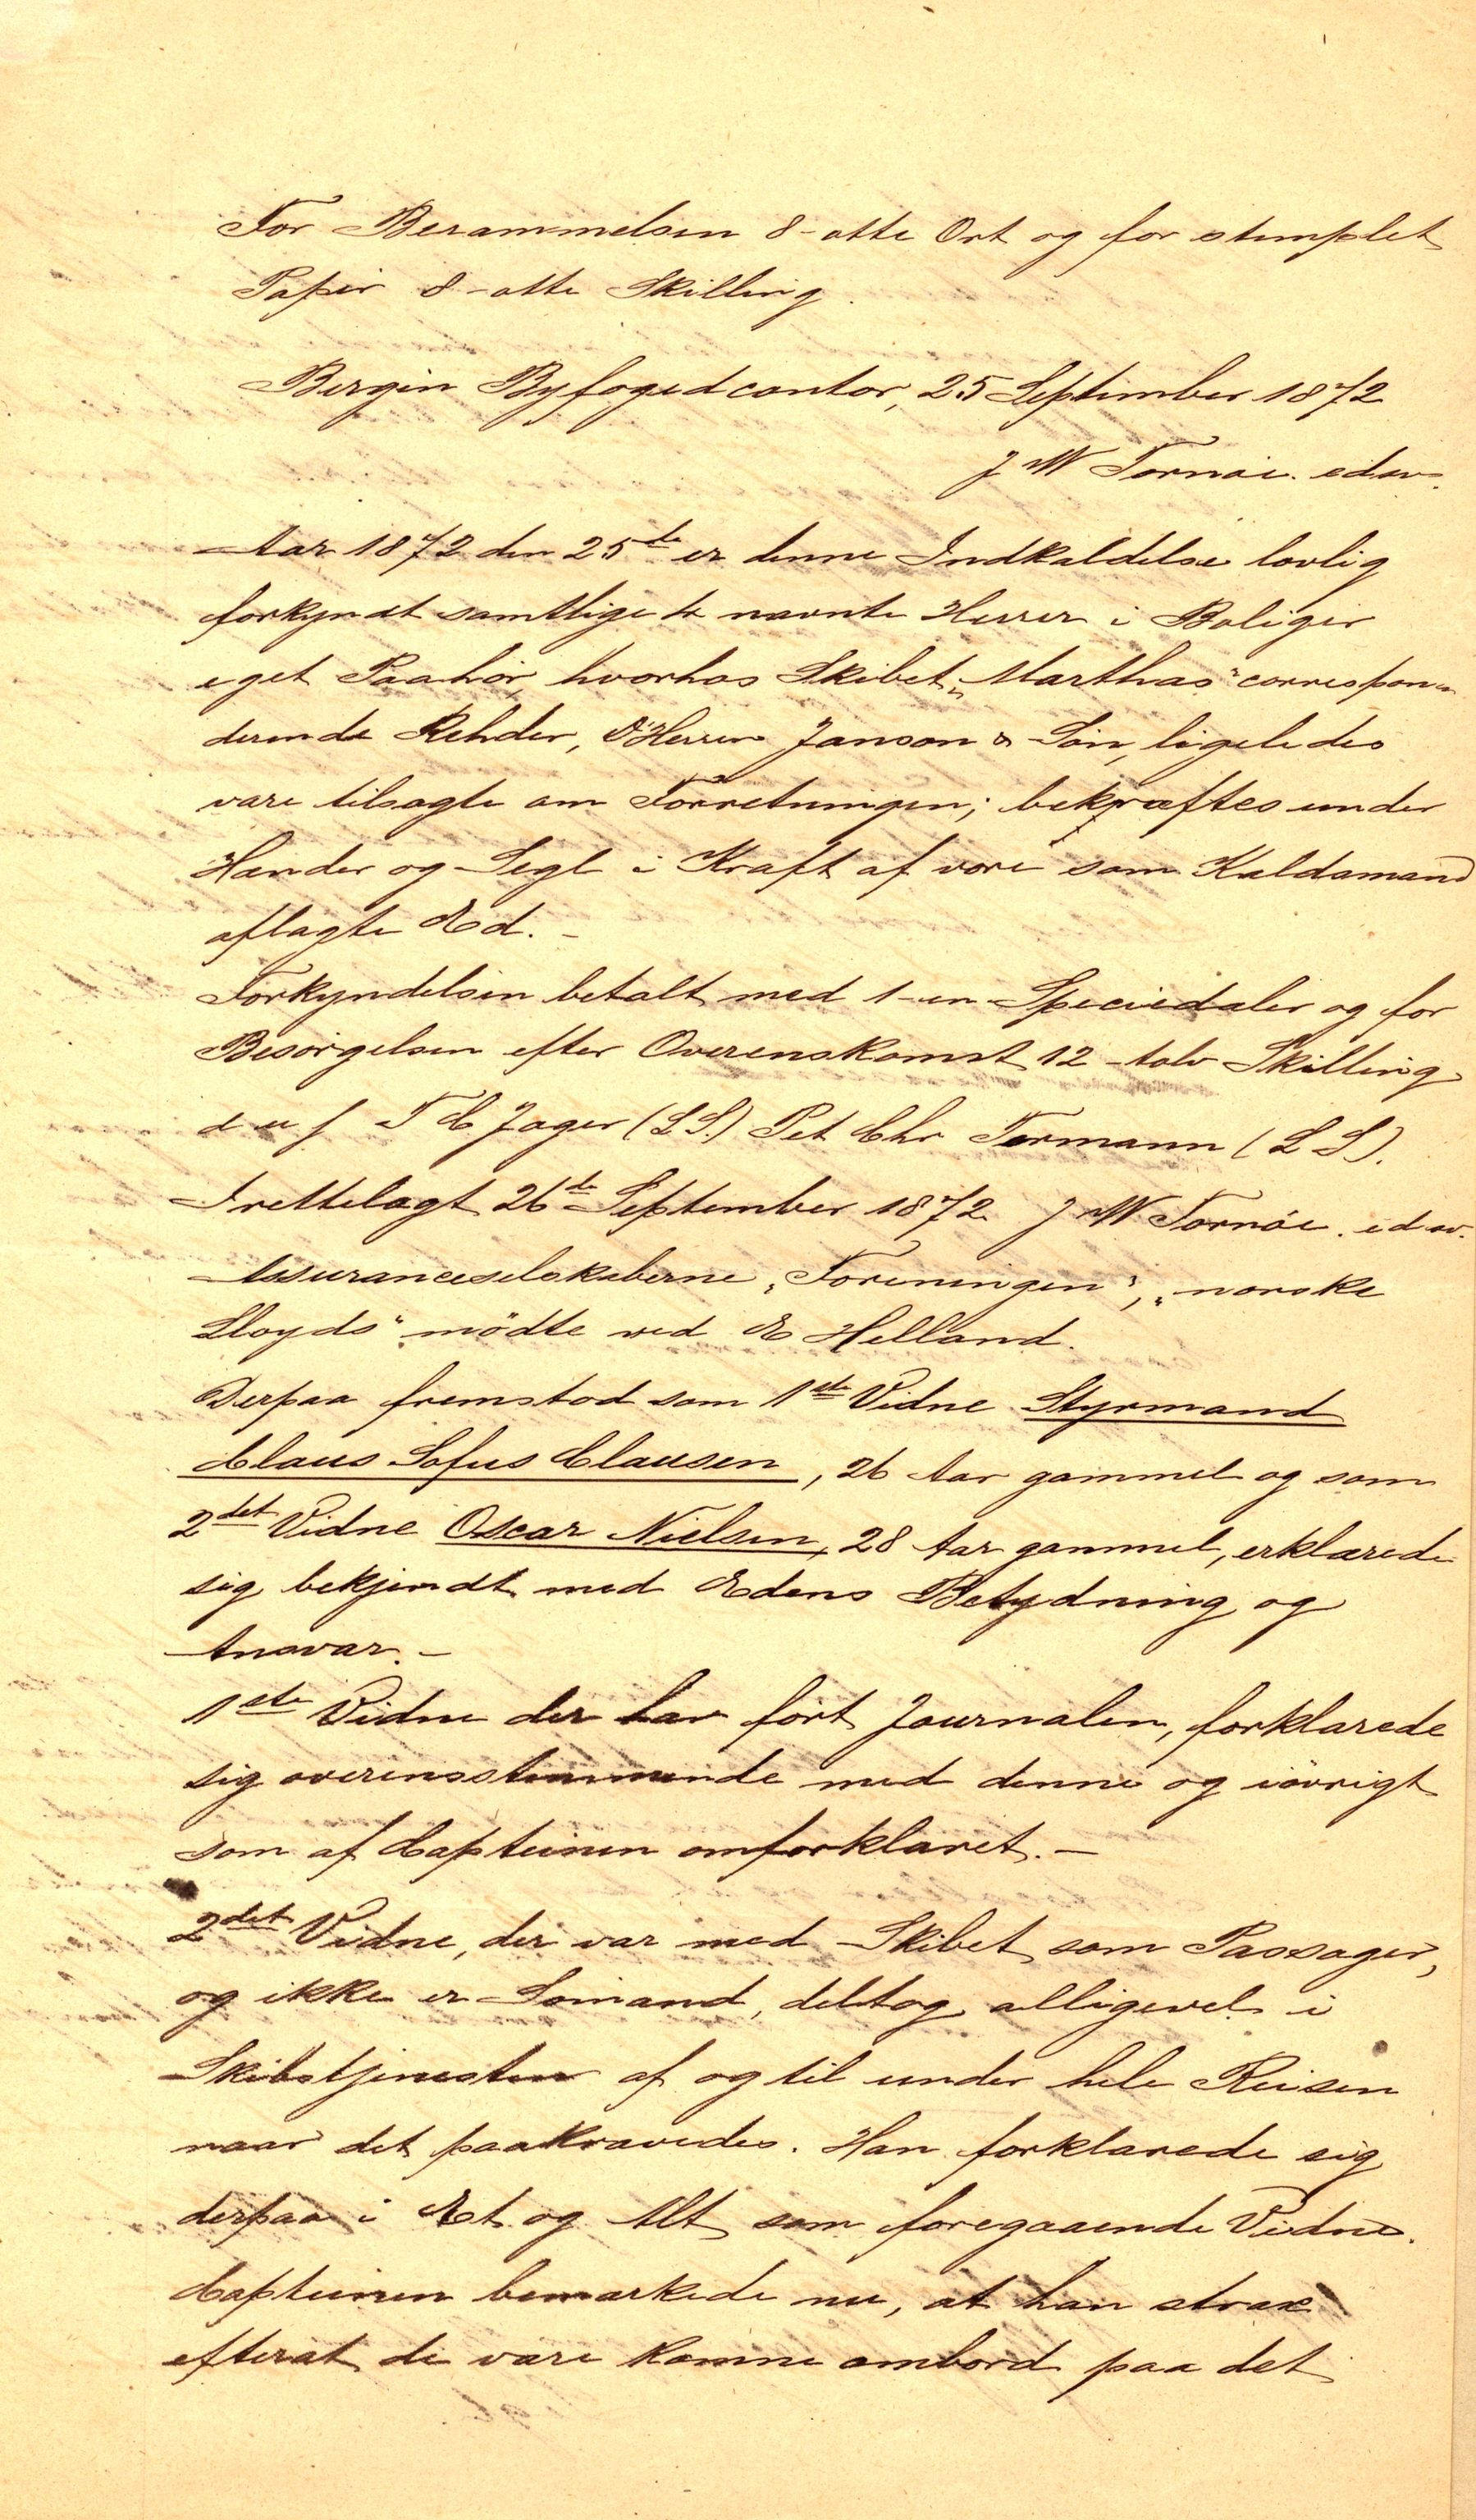 For Berammelsen 8-otte Ort og for stemplet
Papir 8-otte Skilling.
Bergen Byfogedcontor, 25 September 1872
J W Tornöe. edsv.
Aar 1872 den 25de er denne Indkaldelse lovlig
forkyndt samtlige 4 nævnte Herrer i Boliger
eget Paahör, hvorhos Skibet „Marthas" correspon-
derende Rehder, D'Herrer Janson & Sön, ligeledes
vare tilsagte om Forretningen; bekræftes under
Hænder og Segl i Kraft af vore som Kaldsmænd
aflagte Ed. -
Forkyndelsen betalt med 1-en Speciedaler og for
Besörgelsen efter Overenskomst 12-tolv Skilling
d u f T C Jager (L S.) Pet Chr Formann (L S).
Irettelagt 26de September 1872 J W Tornöe. edsv.
Assuranceselskaberne „Foreningen", „norske
Lloyds" mödte ved E Helland.
Derpaa fremstod som 1ste Vidne Styrmand
Claus Sofus Clausen, 26 Aar gammel og som
2det Vidne Oscar Nielsen, 28 Aar gammel, erklærede
sig bekjendt med Edens Betydning og
Ansvar. -
1ste Vidne der har fört Journalen, forklarede
sig overensstemmende med denne og iövrigt
som af Capteinen omforklaret. -
2det Vidne, der var med Skibet som Passager,
og ikke er Sömand, deltog alligevel i
Skibstjenesten af og til under hele Reisen
naar det paakrævedes. Han forklarede sig
derpaa i Et og Alt som foregaaende Vidne.
Capteinen bemærkede nu, at han strax
efterat de vare komne ombord paa det